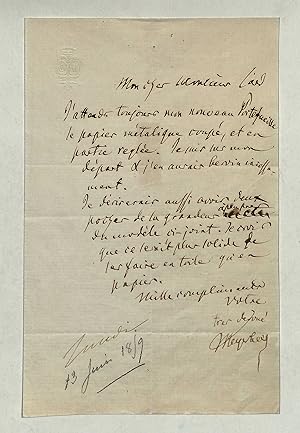 Mon cher Monsieur Card
J'attends toujours mon nouveau Portefeuille
le papier métalique coupé, et en
partie reglé. Je suis sur mon
départ & j'en aurais besoin incessam-
ment.
Je désirerais aussi avoir deux
poches de la grandeur
du modèle ci-joint. Je crois
que ce serait plus solide de
les faire en toile qu'en
papier.
Mille compliments
votre
tres dévoué
Meyerbeer
Lundi
13 Juin 1859